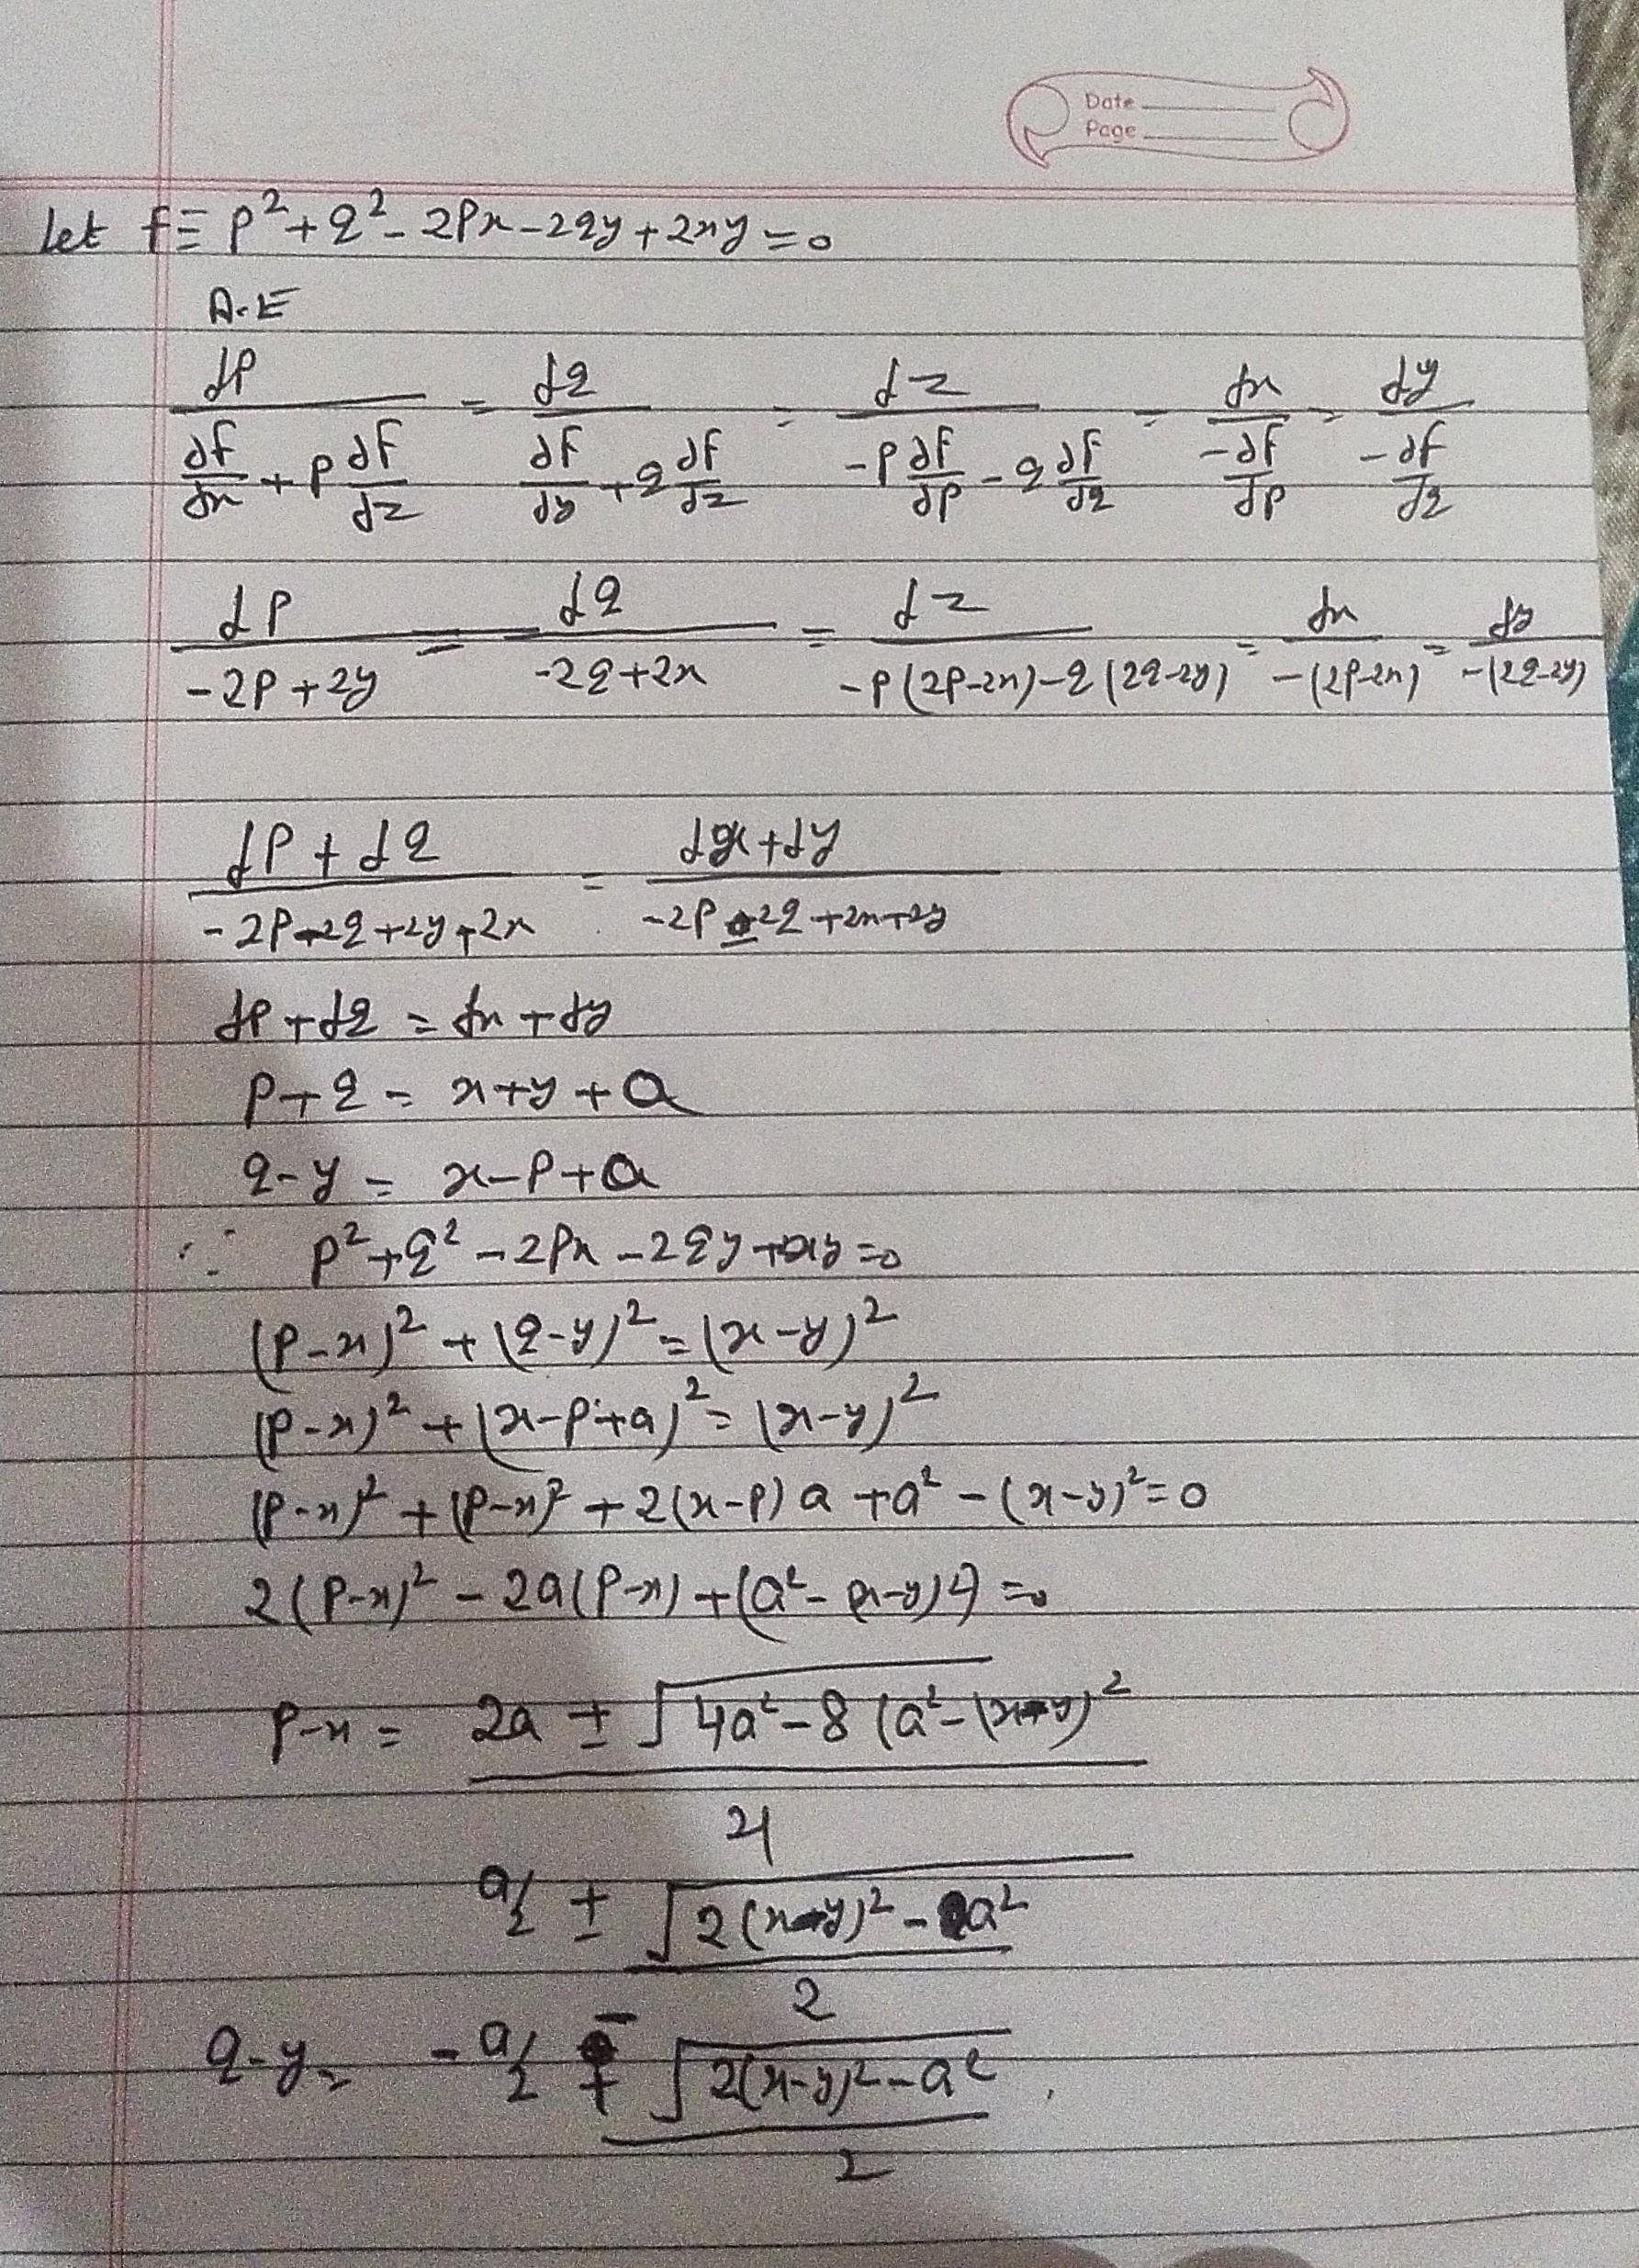 Date
Page
Let f ≡ p² + q² - 2px - 2qy + 2xy = 0
A.E
dp/(∂f/∂x + p ∂f/∂z) = dq/(∂f/∂y + q ∂f/∂z) = dz/(-p ∂f/∂p - q ∂f/∂q) = dx/(-∂f/∂p) = dy/(-∂f/∂q)
dp/(-2p + 2y) = dq/(-2q + 2x) = dz/(-p(2p-2x) - q(2q-2y)) = dx/(-(2p-2x)) = dy/(-(2q-2y))
(dp + dq)/(-2p - 2q + 2y + 2x) = (dx + dy)/(-2p - 2q + 2x + 2y)
dp + dq = dx + dy
p + q = x + y + a
q - y = x - p + a
∵ p² + q² - 2px - 2qy + 2xy = 0
(p-x)² + (q-y)² = (x-y)²
(p-x)² + (x-p+a)² = (x-y)²
(p-x)² + (p-x)² + 2(x-p)a + a² - (x-y)² = 0
2(p-x)² - 2a(p-x) + (a² - (x-y)²) = 0
p-x = (2a ± √(4a² - 8(a² - (x-y)²))/4
a/2 ± √(2(x-y)² - a²)/2
q-y = -a/2 ∓ √(2(x-y)² - a²)/2